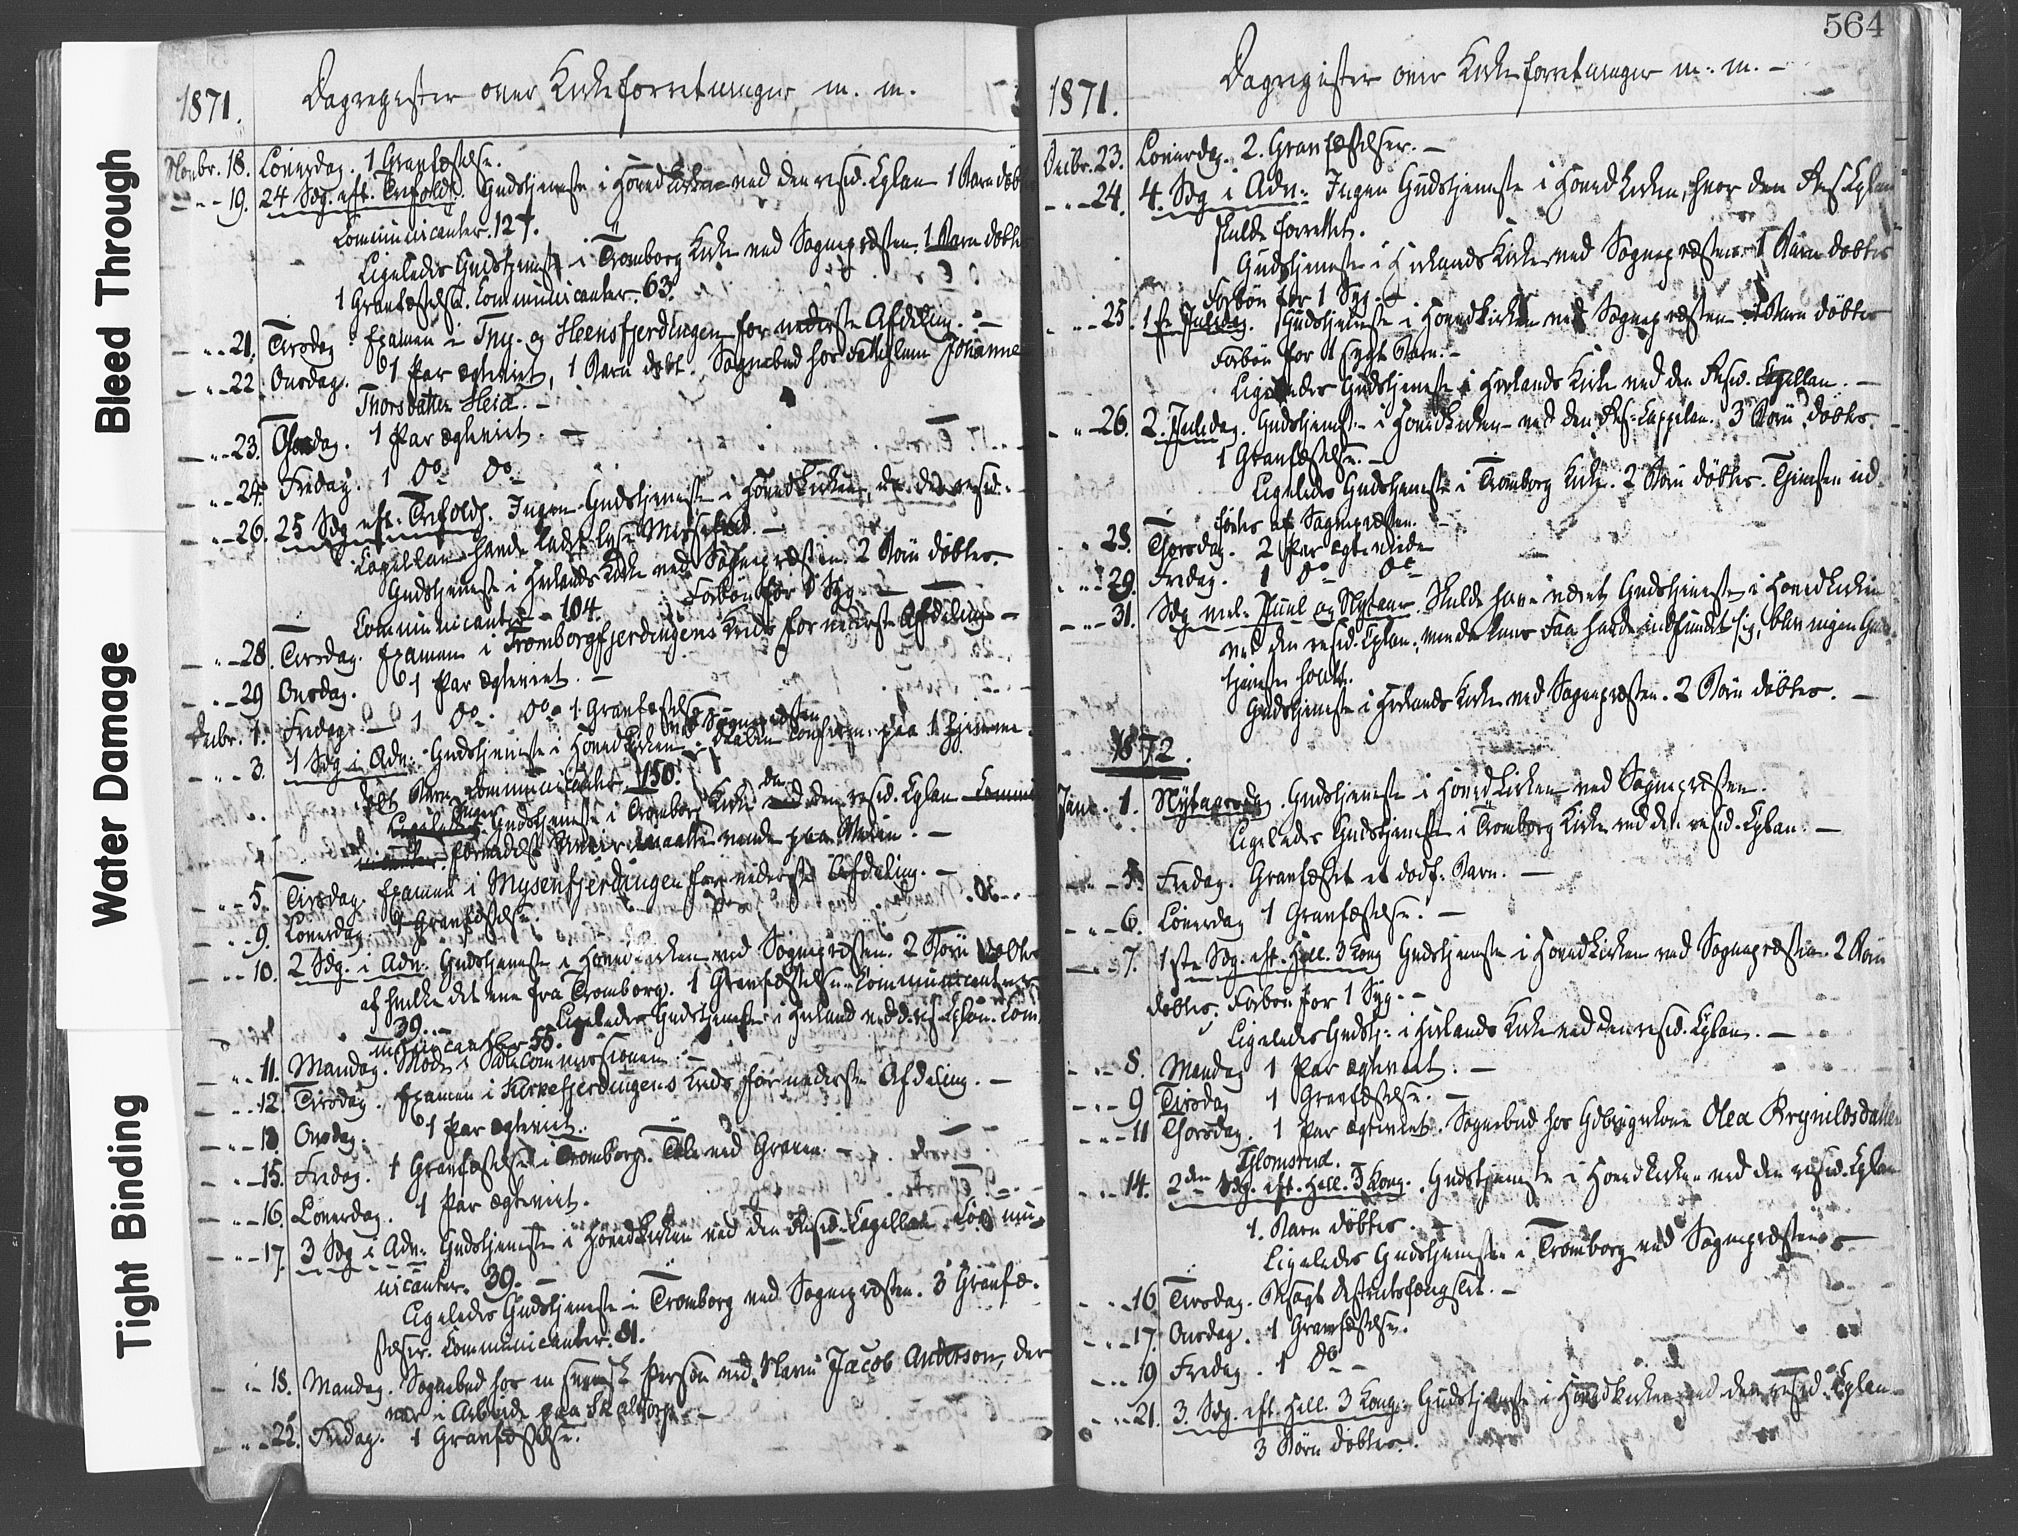 Bleed Through
Water Damage
Tight Binding
1871. Dagregister over Kirkeforretninger m. m.
Novbr. 18. Löverdag. 1 Gravfæstelse.
" 19. 24 Sdg. eft. Trefoldh. Gudstjeneste i Hovedkirken ved den resid. Cplan 1 Barn döbtes
Communicanter. 127.
Ligeledes Gudstjeneste i Tromborg Kirke ved Sognepræsten. 1 Barn döbtes
1 Gravfæstelse. Communicanter. 63.
" 21. Tirsdag Examen i og Heensfjerdingen for nederste Afdeling. –
" 22. Onsdag. 1 Par ægteviet, 1 Barn döbt. Sognebud hos Johanne
Thorsdatter Heid. –
" 23. Thorsdag. 1 Par ægteviet –
" 24. Fredag. 1 Do Do
" 26. 25 Sdg eft. Trefoldh. Ingen Gudstjeneste i Hovedkirken, da den resid.
Capellan havde ladet lyse Messefald. –
Gudstjeneste i Herlands Kirke ved Sognepræsten. 2 Börn döbtes.
Forbön for Syg –
Communicanter – 104.
" 28. Tirsdag. Examen i Tromborgfjerdingens Kreds for nederste Afdeling –
" 29 Onsdag. 1 Par ægteviet. –
Decbr. 1. Fredag. – 1 Do. Do 1 Gravfæstelse –
" 3. 1 Sdg i Adv. Gudstjeneste i Hovedkirken ved Sognepræsten. Daaben confirm. paa 1 hjemme-
döbt Barn. Communicanter. 150.
Ingen Gudstjeneste i Tromborg Kirke da den resid. Cplan
formedelst maatte vende paa Veien. –
" 5. Tirsdag. Examen i Mysenfjerdingen for nederste Afdeling. –
" 9. Löverdag. 9 Gravfæstelse.
" 10. 2 Sdg. i Adv. Gudstjeneste i Hovedkirken ved Sognepræsten. 2 Börn döbtes
af hvilke det ene fra Tromborg. 1 Gravfæstelse. Communicanter
39. – Ligeledes Gudstjeneste i Herland ved d. res. Cplan. Com-
municanter 55.
" 11. Mandag. Möde i Skolecommissionen. –
" 12. Tirsdag. Examen i Kirkefjerdingens Kreds for nederste Afdeling. –
" 13. Onsdag. 1 Par ægteviet.
" 15. Fredag. 1 Gravfæstelse i Tromborg. Tale ved Graven. –
" 16. Löverdag. 1 Par ægteviet.
" 17. 3 Sdg i Adv. Gudstjeneste i Hovedkirken ved den Resid. Capellan. Commu-
nicanter. 39. –
Ligeledes Gudstjeneste i Tromborg ved Sognepræsten. 3 Gravfæ-
stelser. Communicanter. 81.
" 18. Mandag. Sognebud hos en svensk Person ved Navn Jacob Anderson, der
var i Arbeide paa Skaltorp. –
" 22. Fredag. 1 Gravfæstelse.
564
1871. Dagregister over Kirkeforretninger m. m. –
Decbr. 23. Löverdag. 2. Gravfæstelser. –
" 24. 4. Sdg i Adv. Ingen Gudstjeneste i Hovedkirken, hvor den Res. Cplan
skulde forrettet.
Gudstjeneste i Herlands Kirke ved Sognepræsten. 1 Barn döbtes
Forbön for 1 Syg. –
" 25. 1ste Juledag. Gudstjeneste i Hovedkirken ved Sognepræsten. 1 Barn döbtes
Forbön for 1 sygt Barn. –
Ligeledes Gudstjeneste i Herlands Kirke ved den Resid. Capellan. –
" 26. 2. Juledag. Gudstjeneste i Hovedkirken ved den Res. Cappelan. 3 Börn döbtes.
1 Gravfæstelse. –
Ligeledes Gudstjeneste i Tromborg Kirke. 2 Börn döbtes. Tjenesten ud-
förtes af Sognepræsten. –
" 28. Thorsdag. 2 Par ægteviede –
" 29. Fredag. 1 Do Do
" 31. Sdg mel. Juul og Nytaar. Skulde have været Gudstjeneste i Hovedkirken
ved den resid. Cplan, men da kuns Faa havde indfundet sig, blev ingen Guds-
tjeneste holdt.
Gudstjeneste i Herlands Kirke ved Sognepræsten. 2 Börn döbtes. –
1872.
Janr. 1. Nytaarsdag. Gudstjeneste i Hovedkirken ved Sognepræsten.
Ligeledes Gudstjeneste i Tromborg Kirke ved den resid. Cplan. –
" 5. Fredag. Gravfæstet et dödf. Barn. –
" 6. Löverdag 1 Gravfæstelse. –
" 7. 1ste Sdg. eft. Hell. 3 Kong Gudstjeneste i Hovedkirken ved Sognepræsten. 2 Börn
döbtes. Forbön for 1 Syg. –
Ligeledes Gudstj. i Herlands Kirke ved den resid. Cplan. –
" 8. Mandag 1 Par ægteviet. –
" 9 Tirsdag 1 Gravfæstelse. –
" 11 Thorsdag. 1 Par ægteviet. Sognebud hos Gdbrugerkone Olea Brynildsdatter
Glomsrud. –
" 14. 2den Sdg. eft. Hell. 3 Kong. Gudstjeneste i Hovedkirken ved den resid. Cplan
1. Barn döbtes. –
Ligeledes Gudstjeneste i Tromborg ved Sognepræsten. –
" 16 Tirsdag. Besögt Distriktsfængslet. –
" 17. Onsdag. 1 Gravfæstelse.
" 19 Fredag. 1 Do –
" 21. 3. Sdg. eft. Hell. 3 Kong. Gudstjeneste i Hovedkirken ved den resid. Cplan –
3 Börn döbtes.